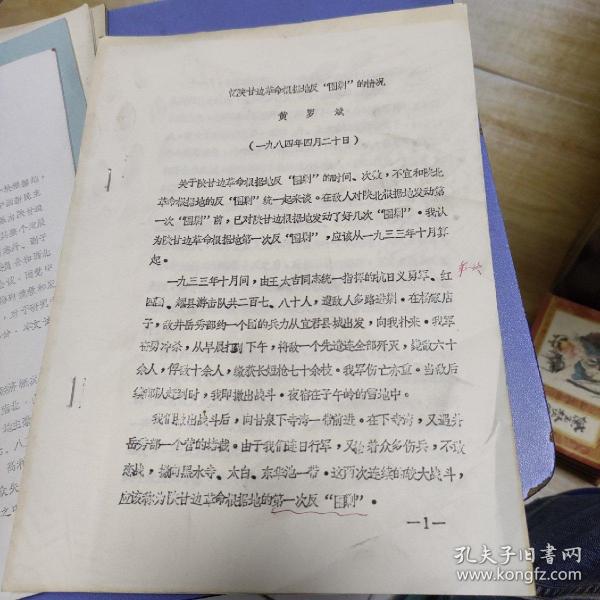 忆陕甘边革命根据地反“围剿”的情况
黄罗斌
（一九八四年四月二十日）
关于陕甘边革命根据地反“围剿”的时间、次数，不宜和陕北
革命根据地的反“围剿”统一起来谈。在敌人对陕北根据地发动第
一次“围剿”前，已对陕甘边根据地发动了好几次“围剿”。我认
为陕甘边革命根据地第一次反“围剿”，应该从一九三三年十月算
起。
第一次
一九三三年十月间，由王太吉同志统一指挥的抗日义勇军、红
四团、耀县游击队共二百七、八十人，遭敌人多路进剿。在杨家店
子，敌井岳秀部约一个团的兵力从宜君县城出发，向我扑来。我军
奋勇冲杀，从早晨打到下午，将敌一个先遣连全部歼灭，毙敌六十
余人，俘敌十余人，缴获长短枪七十余枝。我军伤亡亦重。当敌后
续部队赶到时，我即撤出战斗。夜宿在子午岭的雪地中。
我们撤出战斗后，向甘泉下寺湾一带前进。在下寺湾，又遇井
岳秀部一个营的堵截。由于我们连日行军，又抬着众多伤兵，不敢
恋战，撤向黑水寺、太白、东华池一带。这两次连续的较大战斗，
应该称为陕甘边革命根据地的第一次反“围剿”。
—1—
孔夫子旧书网
www.kongfz.com